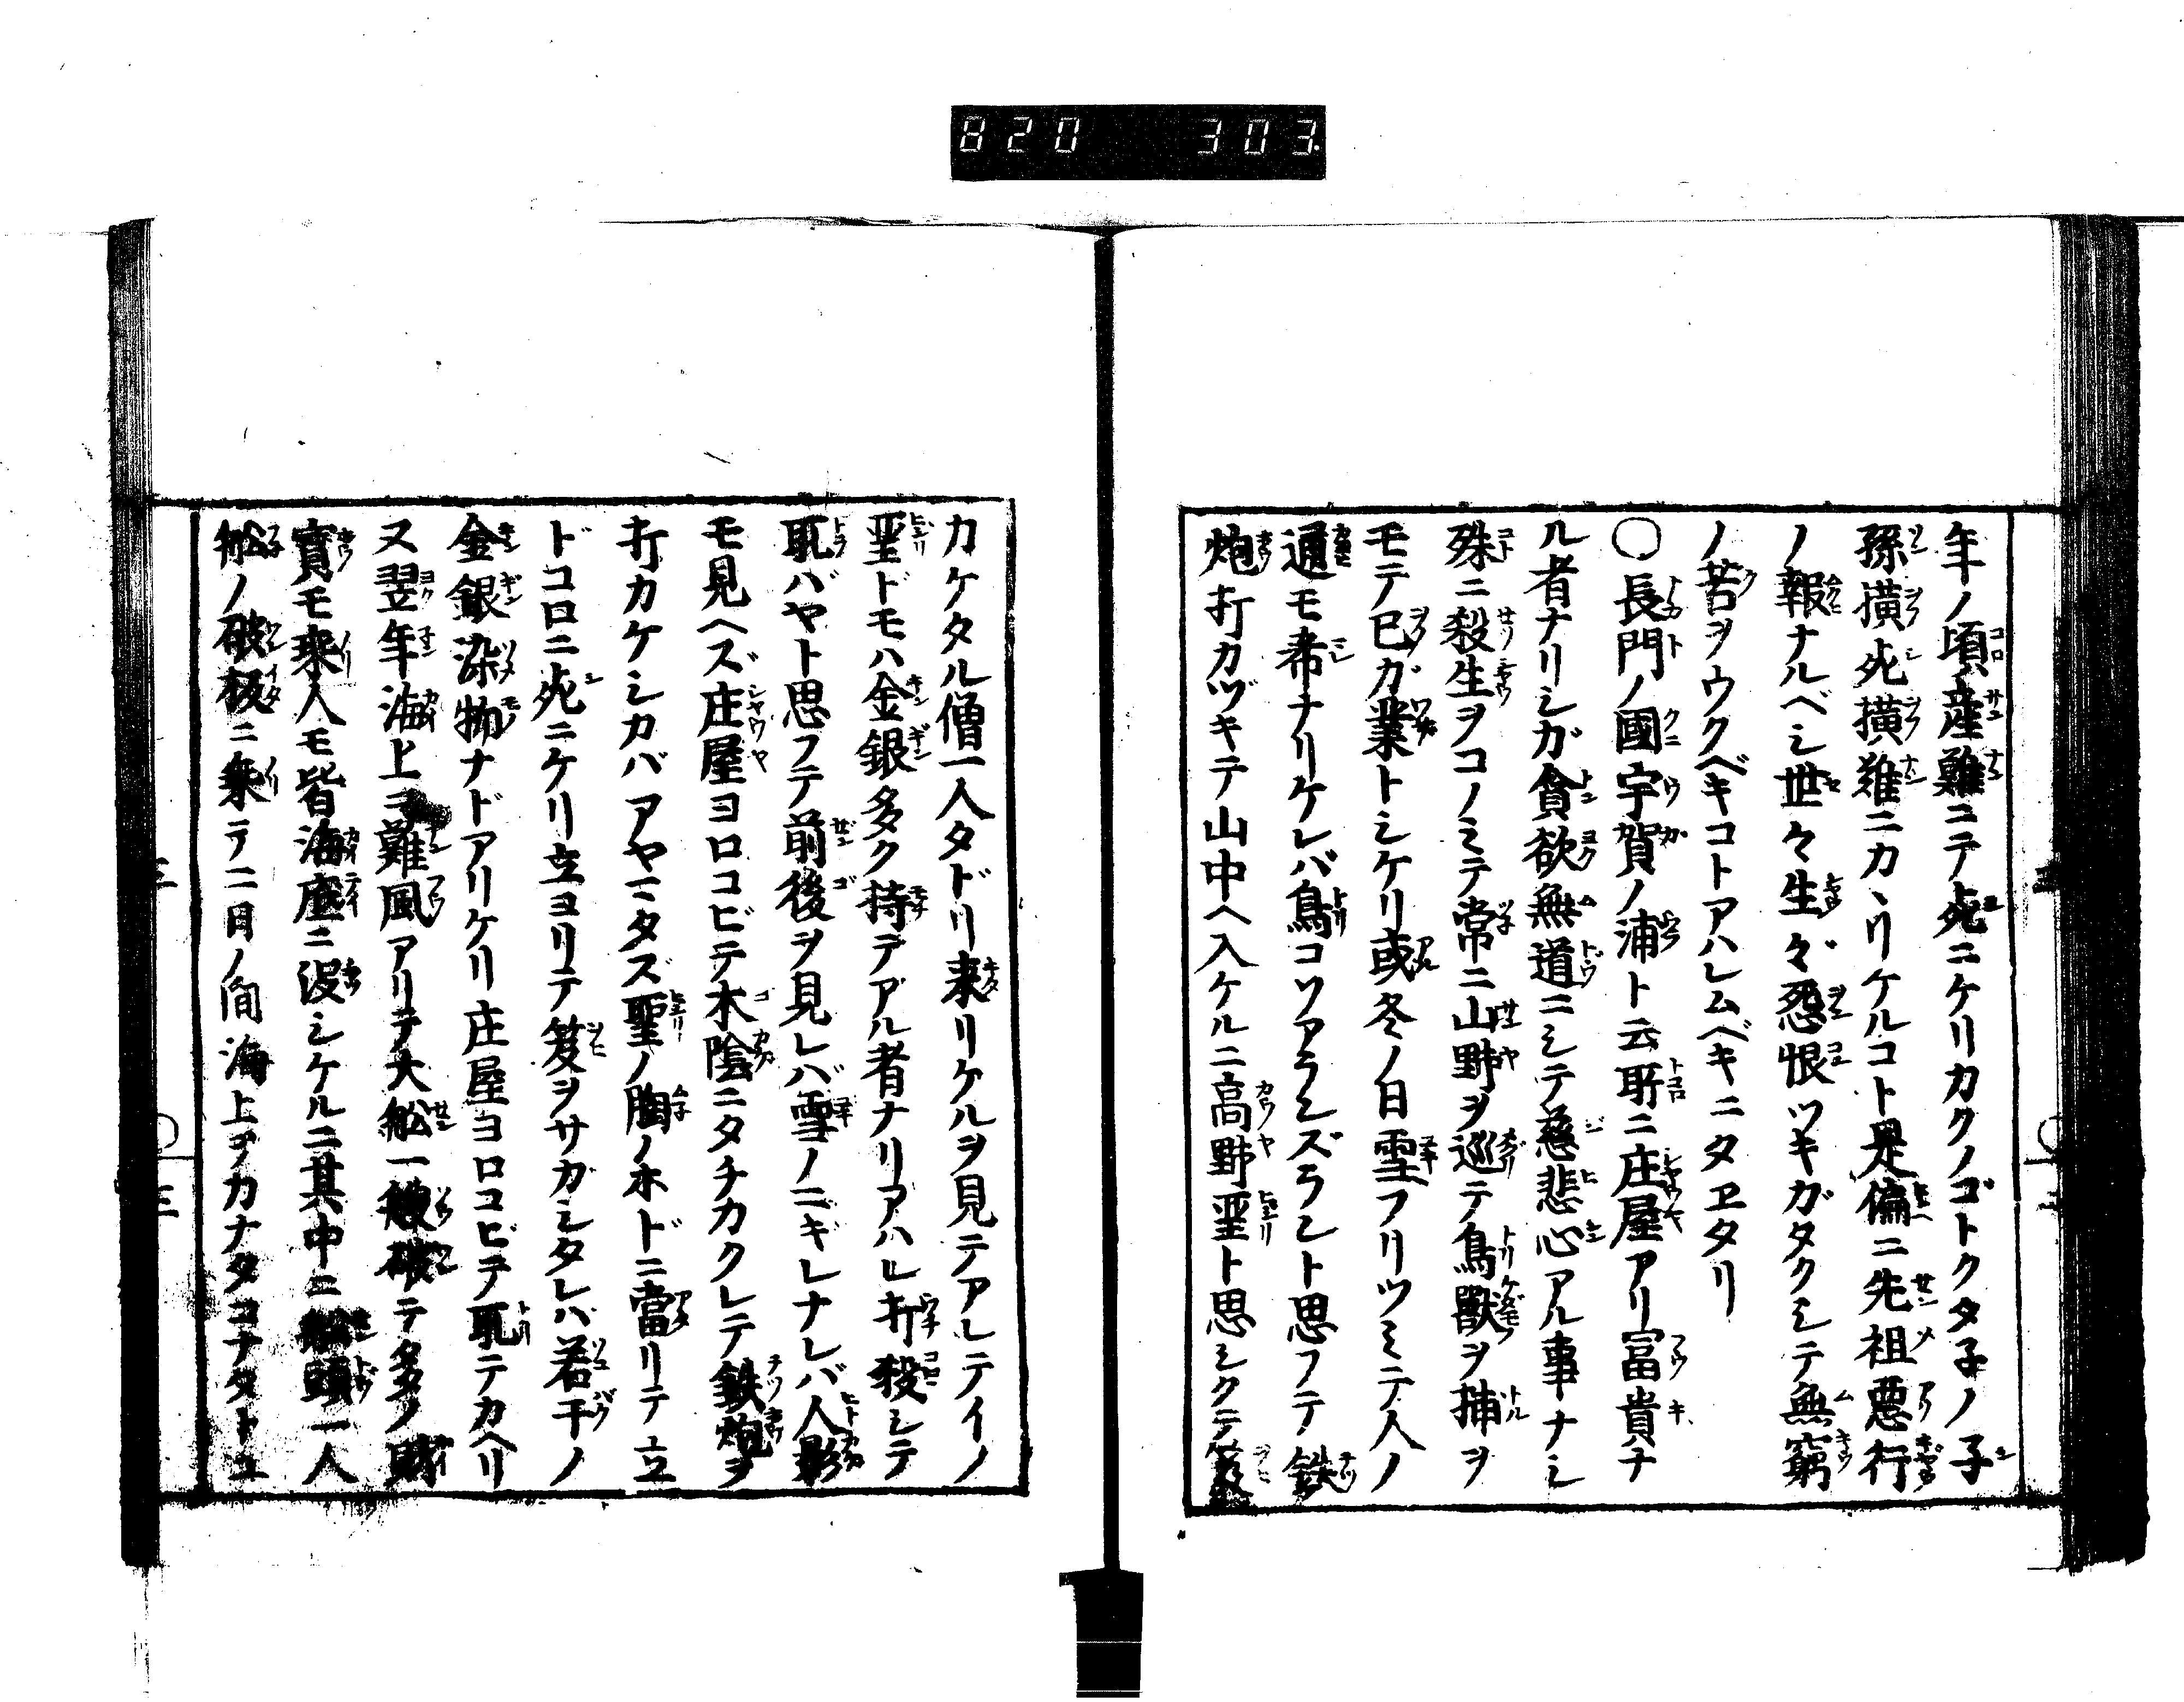 820 303
年ノ頃産難ニテ死ニケリカクノゴトクタ子ノ子
孫横死横難ニカヽリケルコト是偏ニ先祖悪行
ノ報ナルベシ世々生々怨恨ツキガタクシテ無窮
ノ苦ヲウクベキコトアハレムベキニタヱタリ
〇長門ノ國宇賀ノ浦ト云所ニ庄屋アリ冨貴ナ
ル者ナリシガ貪欲無道ニシテ慈悲心アル事ナシ
殊ニ殺生ヲコノミテ常ニ山野ヲ巡テ鳥獸ヲ捕ヲ
モテ已ガ業トシケリ或冬ノ日雪フリツミテ人ノ
通モ希ナリケレバ鳥コソアランズラント思フテ鉄
炮打カヅキテ山中ヘ入ケルニ高野聖ト思シクテ笈
カケタル僧一人タドリ来リケルヲ見テアレテイノ
聖ドモハ金銀多ク持デアル者ナリアハレ打殺シテ
取バヤト思フテ前後ヲ見レバ雪ノニギレナレバ人影
モ見ヘズ庄屋ヨロコビテ木陰ニタチカクレテ鉄炮ヲ
打カケシカバアヤマタズ聖ノ胸ノホドニ當リテ立
ドコロニ死ニケリ立ヨリテ笈ヲサガシタレバ若干ノ
金銀染物ナドアリケリ庄屋ヨロコビテ取テカヘリ
ヌ翌年海上ニ難風アリテ大舩一艘破テ多ノ財
寳モ乗人モ皆海底ニ没シケルニ其中ニ舩頭一人
舩ノ破板ニ乗テ二日ノ間海上ヲカナタコナタトユ